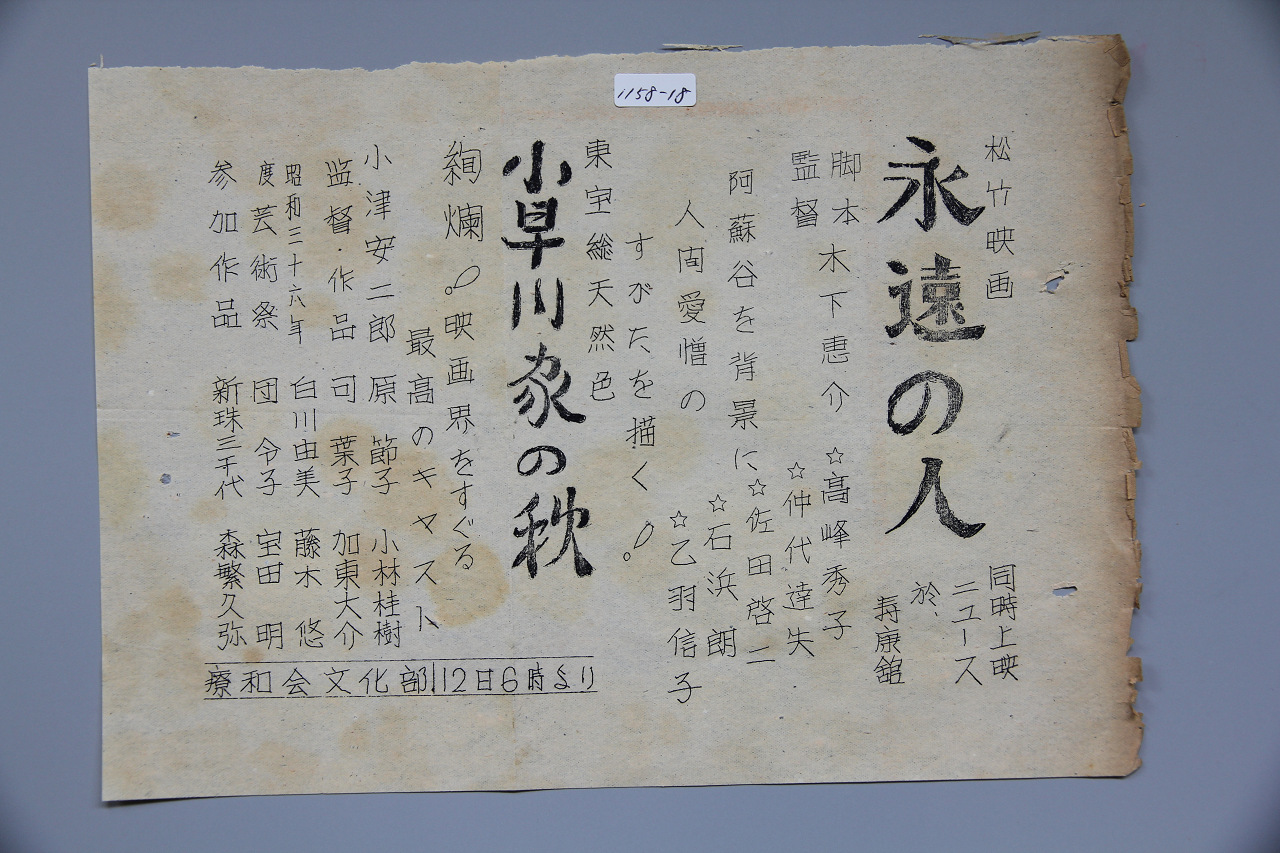 1158-18
松竹映画
永遠の人
脚本
監督
木下恵介
☆高峰秀子
☆仲代達矢
☆佐田啓二
☆石浜朗
☆乙羽信子
阿蘇谷を背景に
人间愛憎の
すがたを描く!。
同時上映
ニュース
於、
寿康舘
東宝総天然色
小早川家の秋
絢爛!。映画界をすぐる
最高のキャスト
小津安二郎
监督・作品
昭和三十六年
度芸術祭
参加作品
原節子 小林桂樹
司葉子 加東大介
白川由美 藤木悠
団令子 宝田明
新珠三千代 森繁久弥
療和会文化部 12日6時より